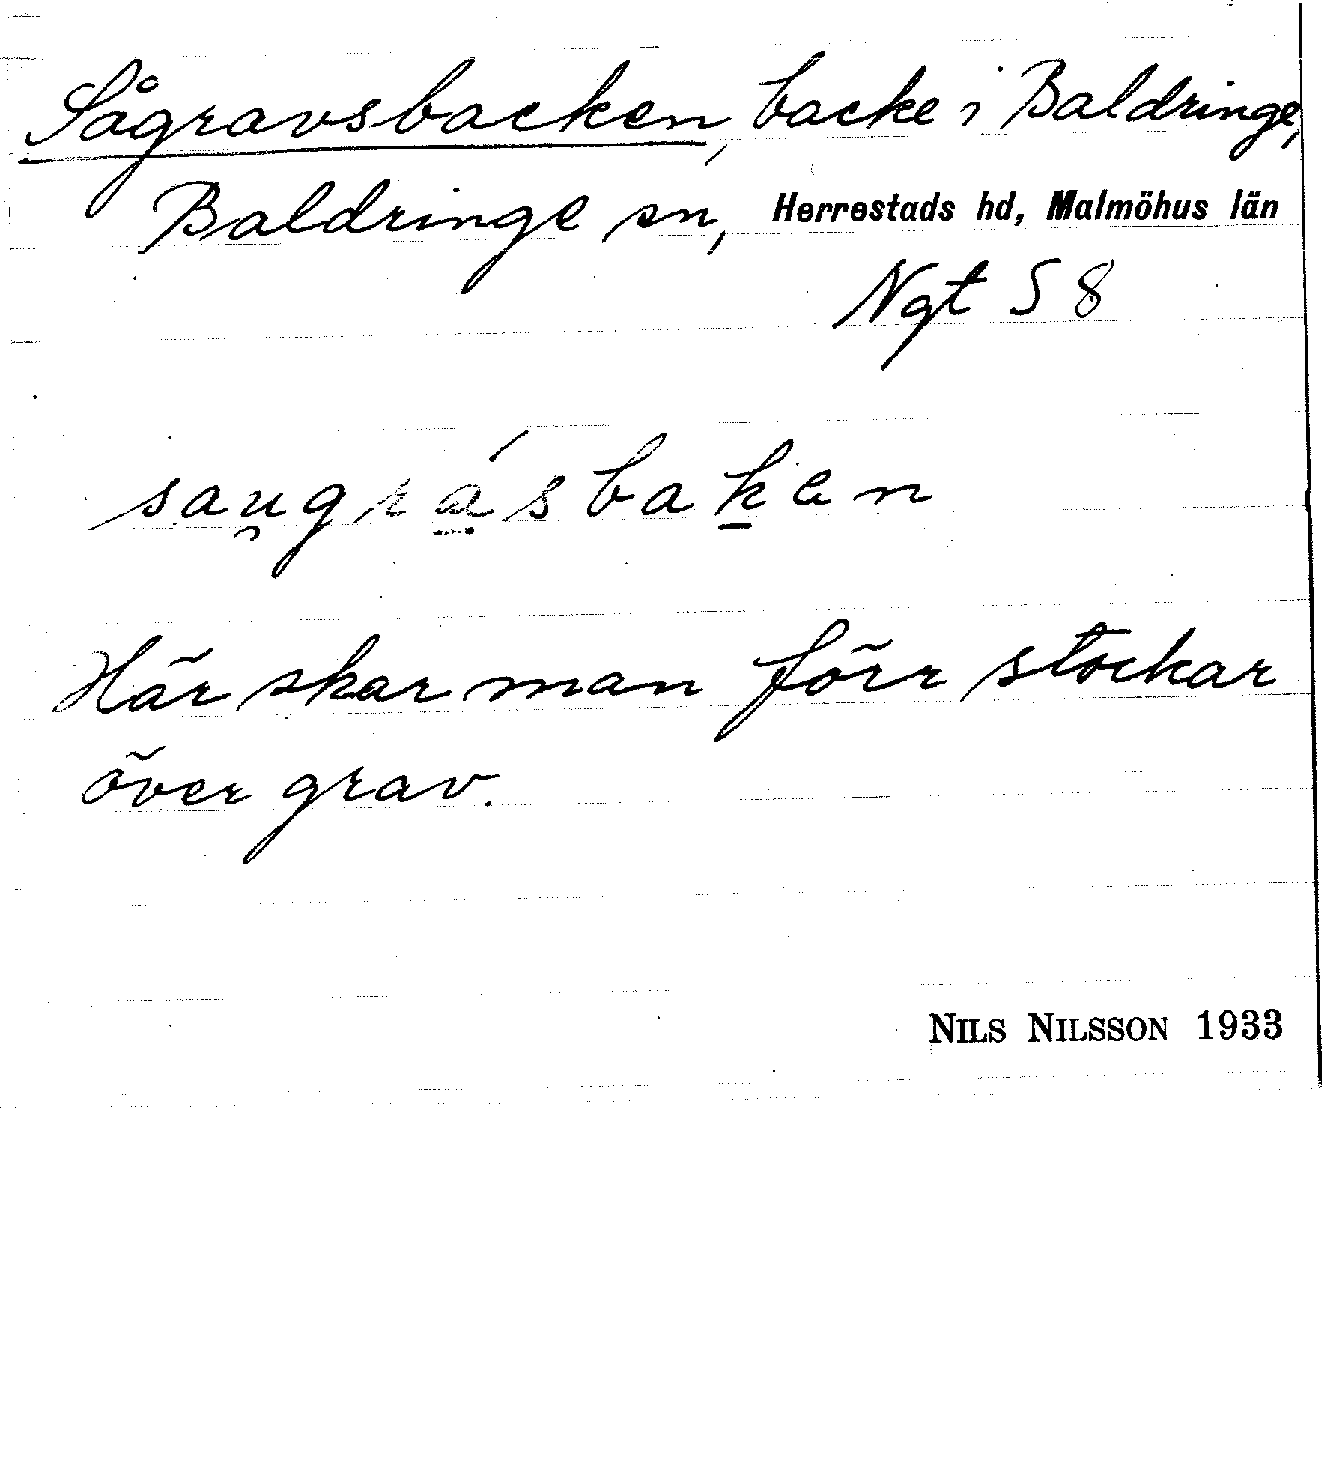 Sågravsbacken, backe i Baldringe,
Baldringe sn, Herrestads hd, Malmöhus län
Ngt S 8
sau̯grá̱sbaḵen
Här skar man förr stockar
över grav.
NILS NILSSON 1933